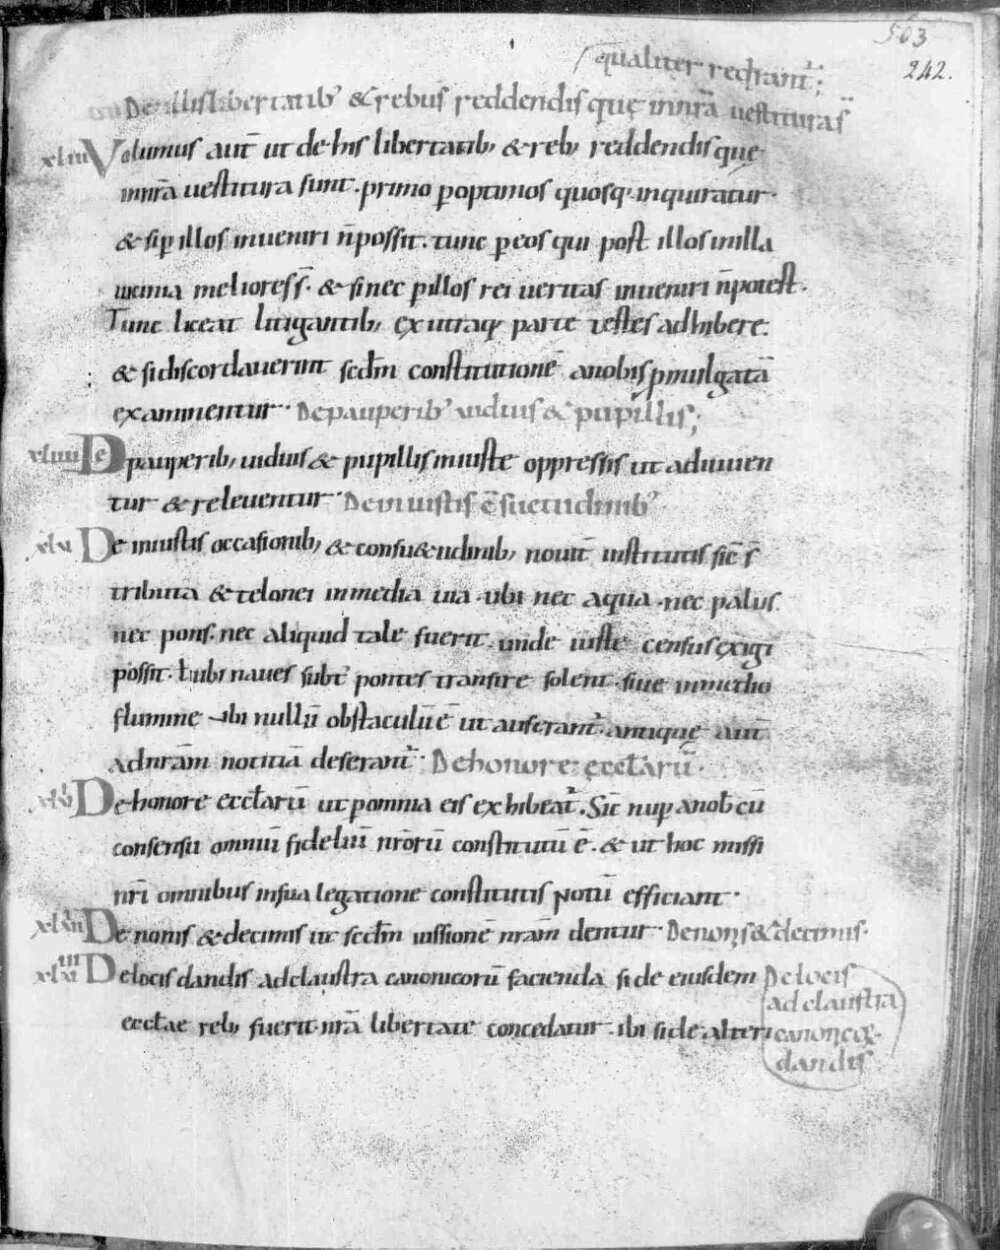 503
242.
qualiter reddant᷑;
De illis libertatib' & rebus reddendis quę in nr̄a uestituras̄
xliii Volumus aut̄ ut de his libertatib; & reb; reddendis que
in nr̄a uestitura sunt. primo ꝑ optimos quosq; inquiratur.
& si ꝑ illos inueniri n̄ possit. tunc ꝑ eos qui post illos in illa
uicinia meliores s̄. & si nec ꝑ illos rei ueritas inueniri n̄ potest.
Tunc liceat litigantib; ex utraq; parte testes adhibere.
& si discordauerint scd̄m constitutionē a nobis ꝓmulgatā
examinentur. De pauperib' uiduis & pupillis;
xliiii De pauperib; uiduis & pupillis iniuste oppressis ut adiuuen
tur & releuentur. De iniustis c̄suetudinib'
xlv De iniustis occasionib; & consu&udinib; nouit̄ institutis sic̄ s̄
tributa & telonei in media uia. ubi nec aqua. nec palus
nec pons. nec aliquid tale fuerit. unde iuste census exigi
possit. ł ubi naues subt᷑ pontes transire solent. siue in medio
flumine ubi nullū obstaculū ē ut auferant᷑. antique aut̄
ad nr̄am notitiā deferant᷑. De honore eccłarū.
De honore eccłarū ut ꝑ omnia eis exhibeat᷑. Sic̄ nuꝑ a nob̄ cū
consensu omniū fideliū nr̄orū constitutū ē. & ut hoc missi
nr̄i omnibus in sua legatione constitutis notū efficiant.
xlvii De nonis & decimis ut scd̄m iussionē nr̄am dentur. De nonis & decimis.
De locis dandis ad claustra canonicorū facienda si de eiusdem De locis
ad claustra
eccłae reb; fuerit. nr̄a libertate concedatur. ibi si de alteri canonicoꝝ
dandis